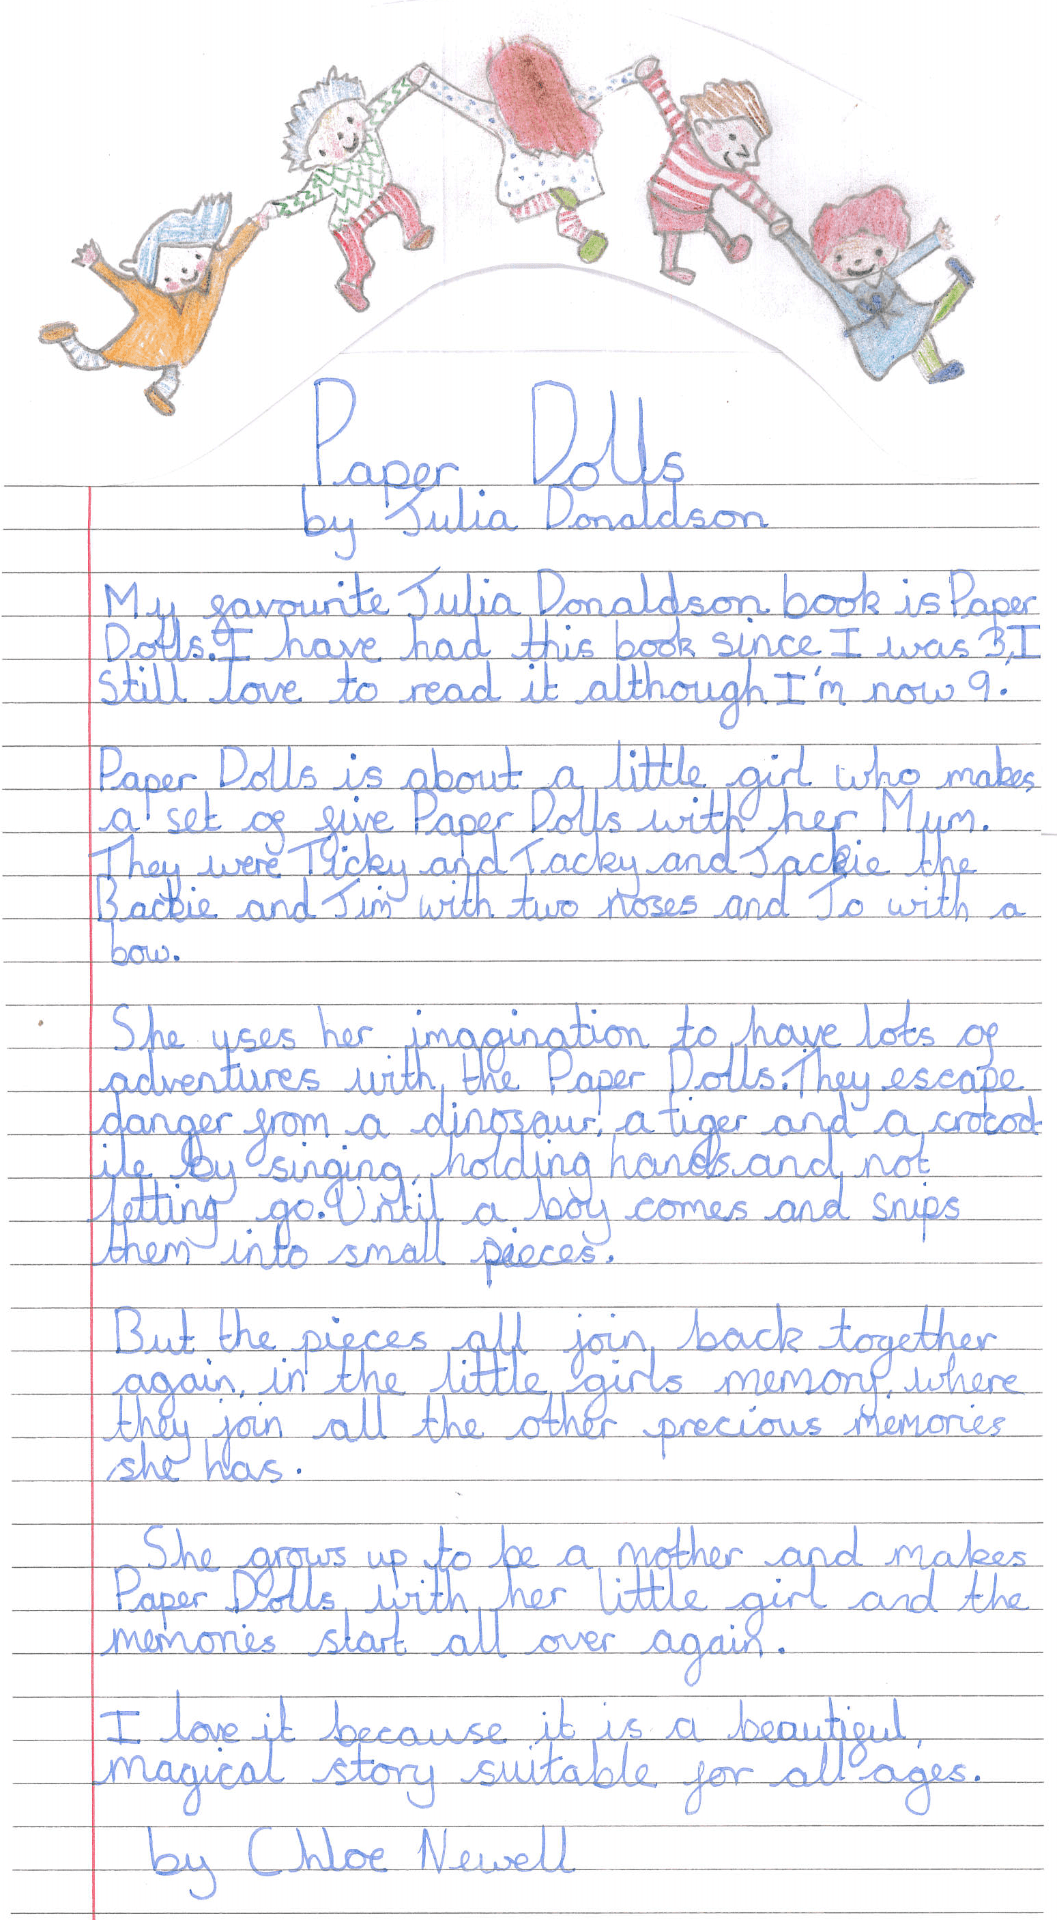 Paper Dolls
by Julia Donaldson
My favourite Julia Donaldson book is Paper
Dolls. I have had this book since I was 3, I
still love to read it although I'm now 9.
Paper Dolls is about a little girl who makes
a set of five Paper Dolls with her Mum.
They were Ticky and Tacky and Jackie the
Backie and Jim with two noses and Jo with a
bow.
She uses her imagination to have lots of
adventures with the Paper Dolls. They escape
danger from a dinosaur, a tiger and a crocod
ile by singing, holding hands and not
letting go. Until a boy comes and snips
them into small pieces.
But the pieces all join back together
again, in the little girls memory, where
they join all the other precious memories
she has.
She grows up to be a mother and makes
Paper Dolls with her little girl and the
memories start all over again.
I love it because it is a beautiful,
magical story suitable for all ages.
by Chloe Newell